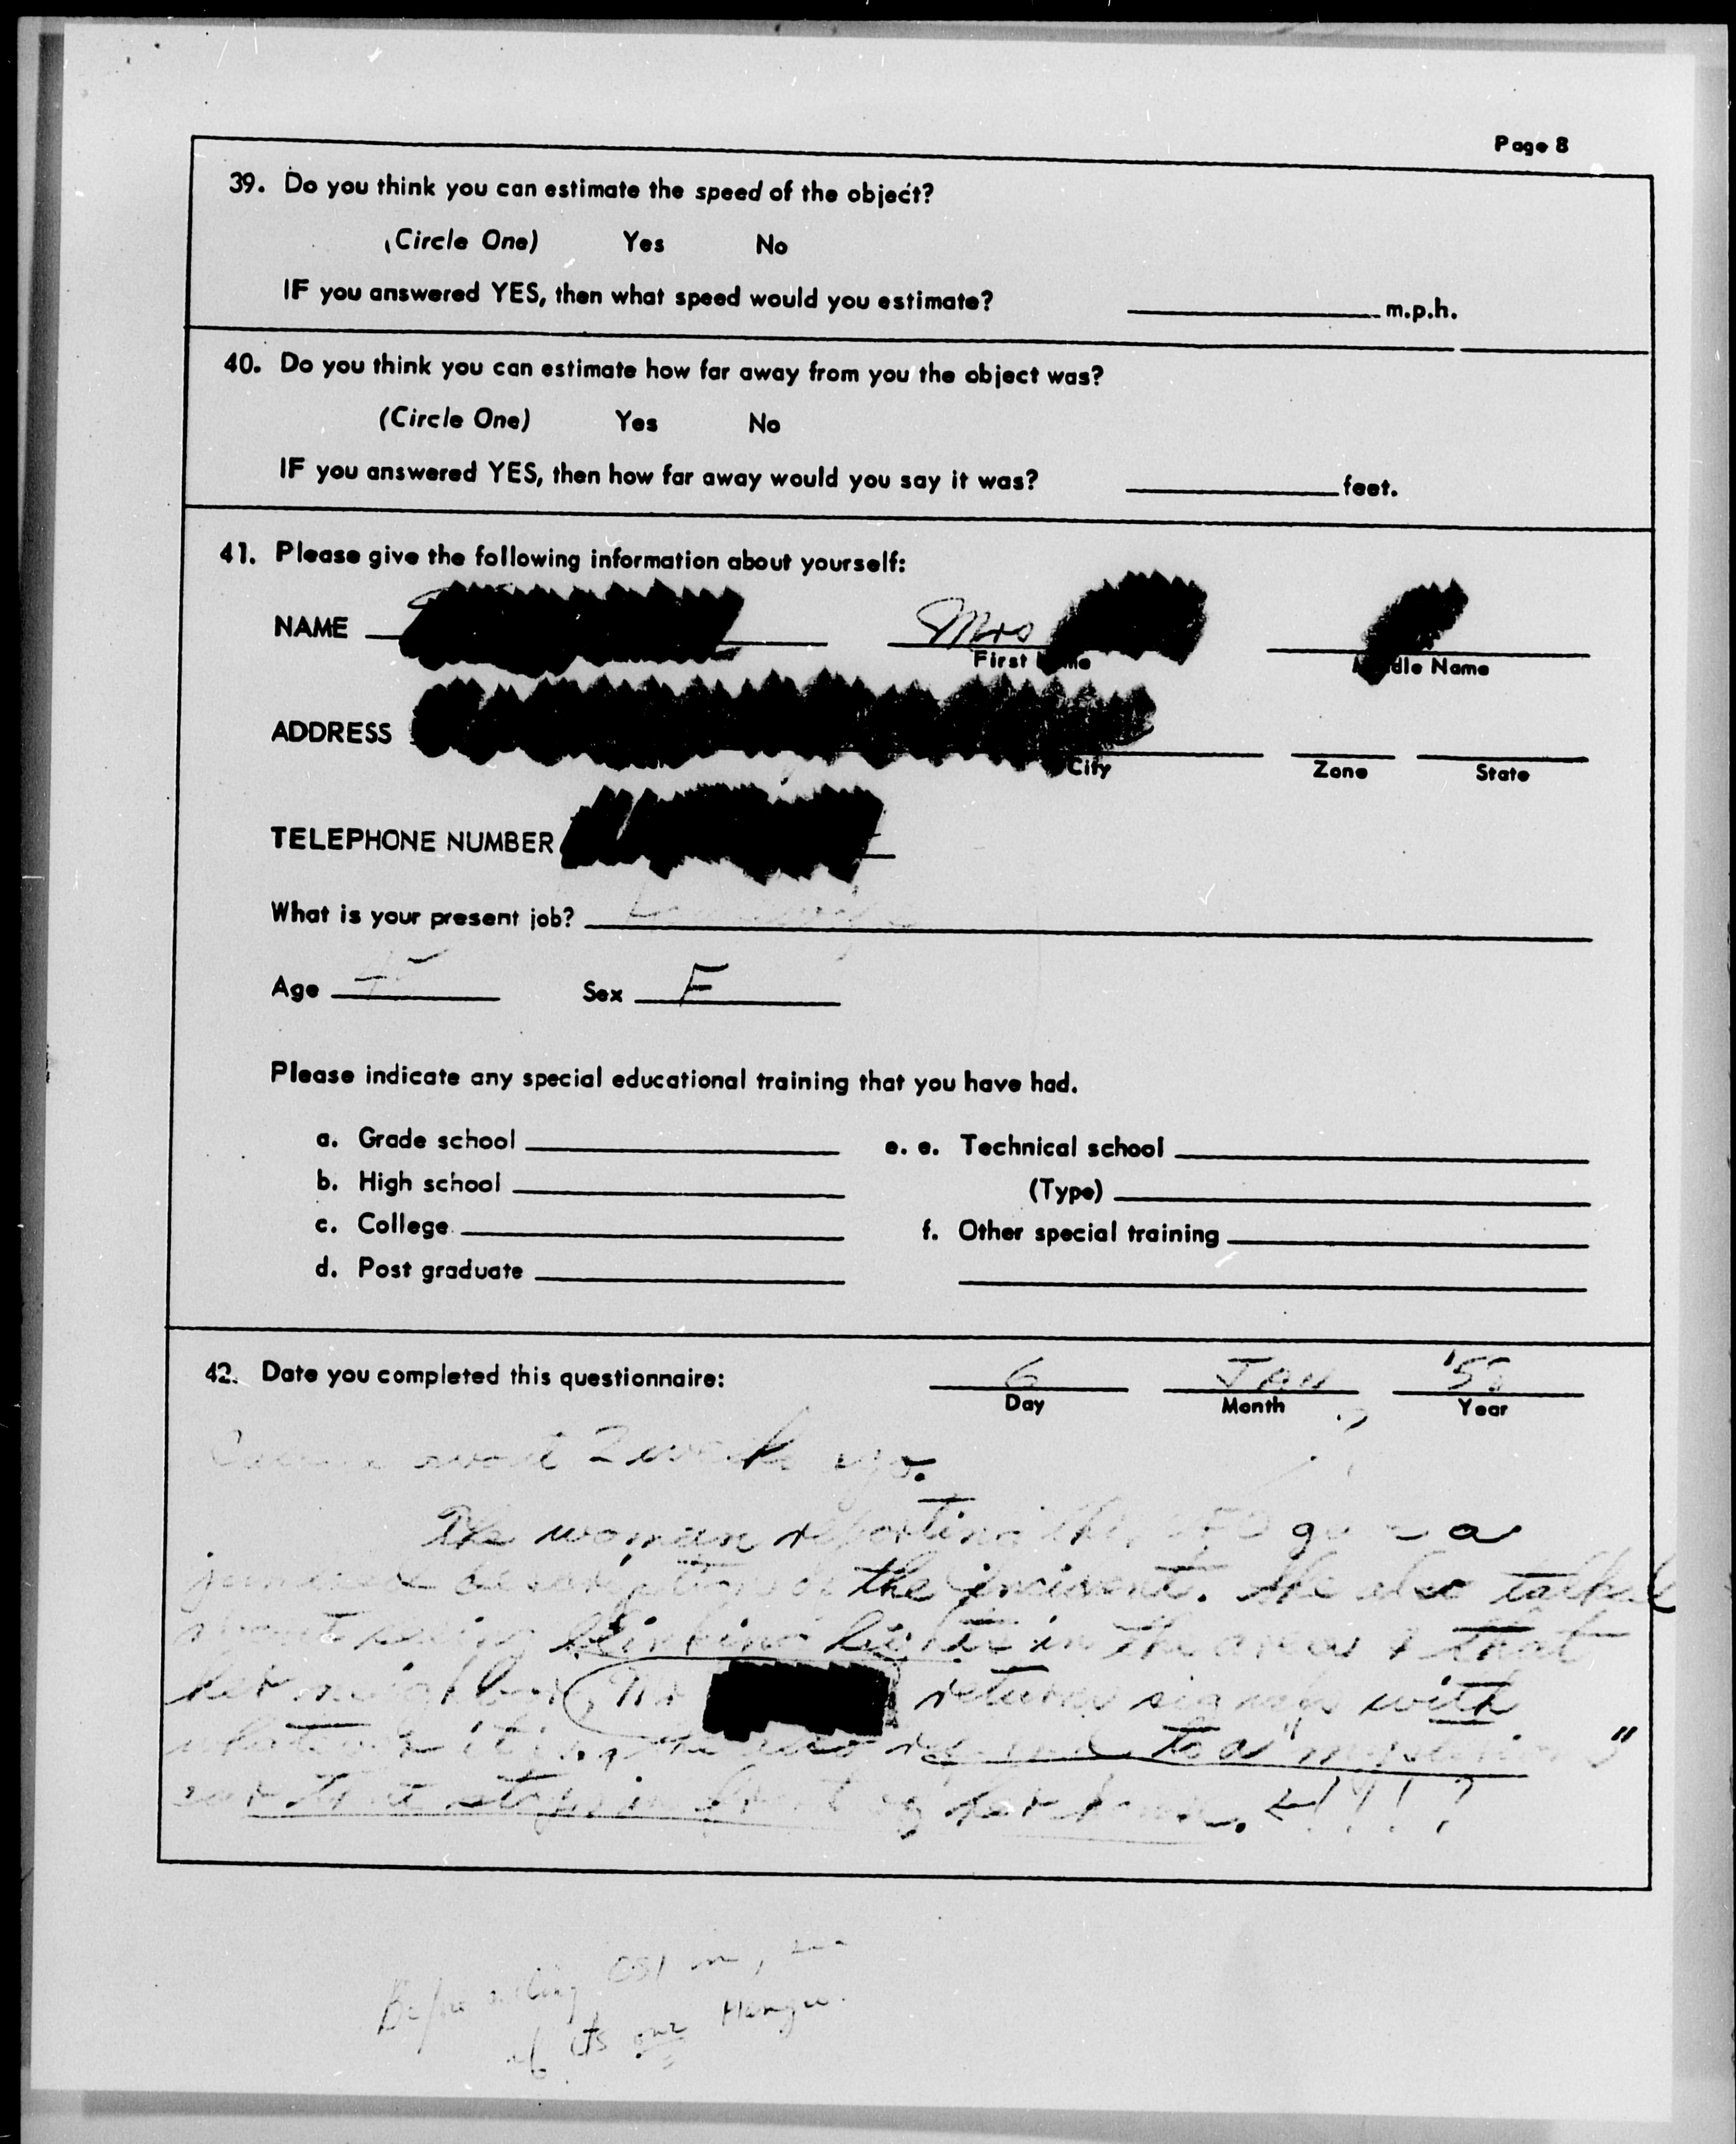 Page 8
39. Do you think you can estimate the speed of the object?
(Circle One) Yes No
IF you answered YES, then what speed would you estimate? m.p.h.
40. Do you think you can estimate how far away from you the object was?
(Circle One) Yes No
IF you answered YES, then how far away would you say it was? feet.
41. Please give the following information about yourself:
NAME Mrs
First Middle Name
ADDRESS
City Zone State
TELEPHONE NUMBER
What is your present job?
Age Sex F
Please indicate any special educational training that you have had.
a. Grade school e. e. Technical school
b. High school (Type)
c. College f. Other special training
d. Post graduate
42. Date you completed this questionnaire: 6 JAN
Day Month Year
2 week ago.
The woman reporting the a
description of the incident. She also talked
about seeing blinking lights in the area & that
her neighbor, Mr returns signals with
whatever it is. She also to a "
car that stops in front of her home. !!!?
Before calling OSI in,
if its our